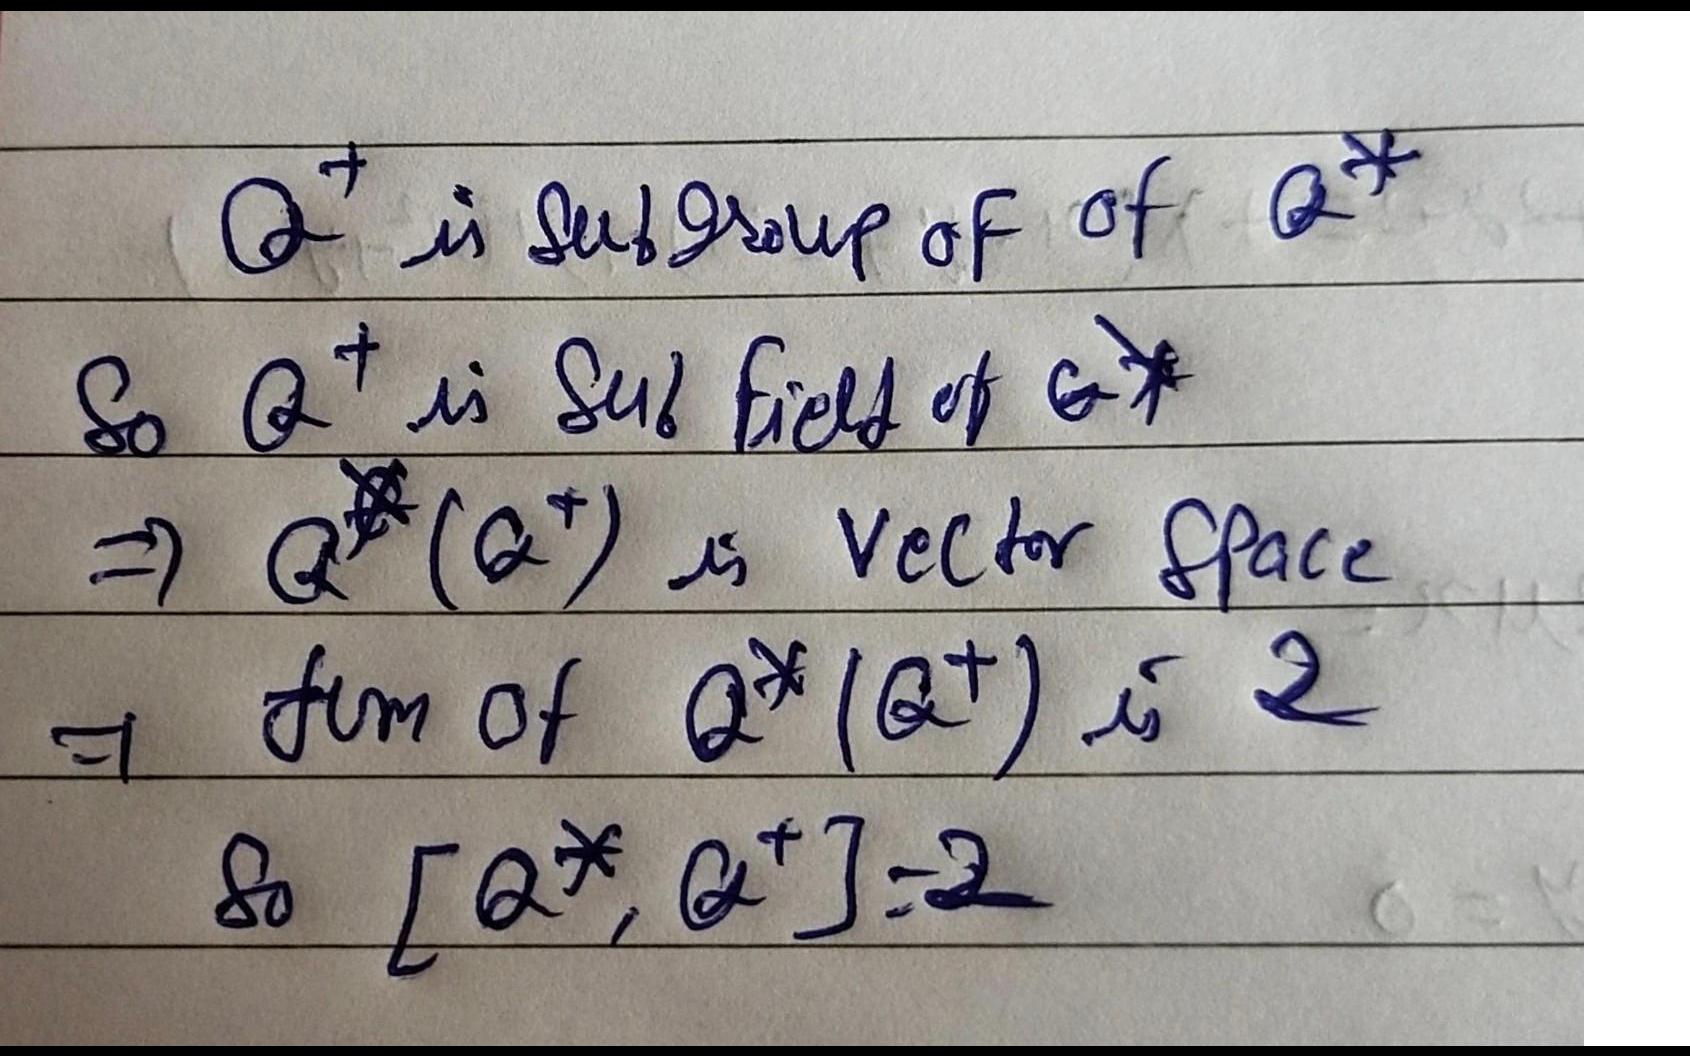 Q⁺ is subgroup of of Q*
So Q⁺ is sub field of Q*
⇒ Q*(Q⁺) is vector space
⇒ dim of Q*(Q⁺) is 2
So [Q*, Q⁺]=2